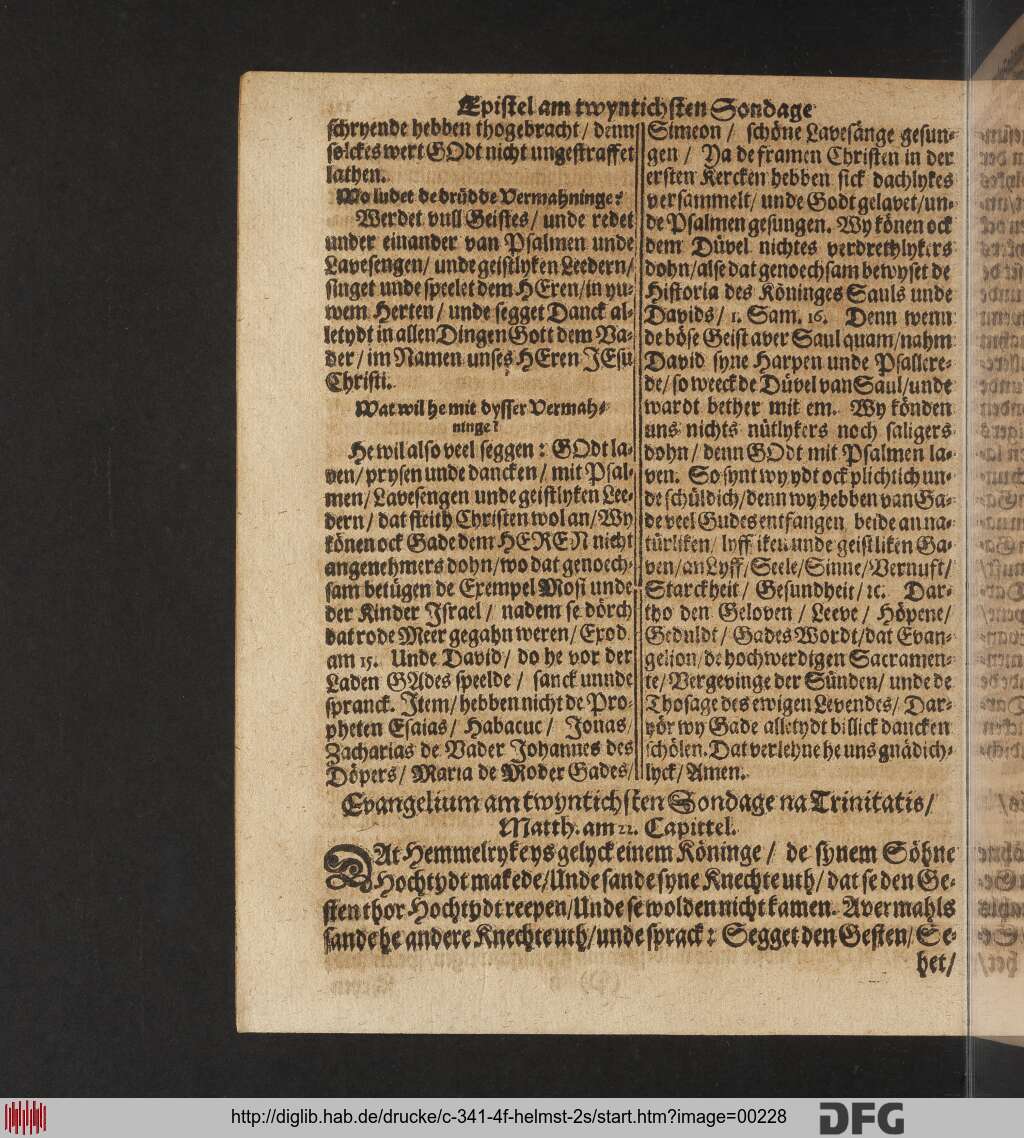 Epistel am twyntichsten Sondage
schryende hebben thogebracht / denn
solckes wert GOdt nicht ungestraffet
lathen.
Wo ludet de drüdde Vermahninge?
Werdet vull Geistes / unde redet
under einander van Psalmen unde
Lavesengen / unde geistlyken Leedern /
singet unde speelet dem HEren / in yu-
wem Herten / unde segget Danck al-
letydt in allen Dingen Gott dem Va-
der / im Namen unses HEren JEsu
Christi.
Wat wil he mit dysser Vermah-
ninge?
He wil also veel seggen : GOdt la-
ven / prysen unde dancken / mit Psal-
men / Lavesengen unde geistlyken Lee-
dern / dat steith Christen wol an / Wy
können ock Gade dem HEREN nicht
angenehmers dohn / wo dat genoech-
sam betügen de Exempel Mosi unde
der Kinder Israel / nadem se dörch
dat rode Meer gegahn weren / Exod.
am 15. Unde David / do he vor der
Laden GAdes speelde / sanck unnde
spranck. Item / hebben nicht de Pro-
pheten Esaias / Habacuc / Jonas /
Zacharias de Vader Johannes des
Döpers / Maria de Moder Gades /
Simeon / schöne Lavesänge gesun-
gen / Ya de framen Christen in der
ersten Kercken hebben sick dachlykes
versammelt / unde Godt gelavet / un-
de Psalmen gesungen. Wy könen ock
dem Düvel nichtes verdrethlykers
dohn / alse dat genoechsam bewyset de
Historia des Köninges Sauls unde
Davids / 1. Sam. 16. Denn wenn
de böse Geist aver Saul quam / nahm
David syne Harpen unde Psallere-
de / so weeck de Düvel van Saul / unde
wardt bether mit em. Wy könden
uns nichts nütlykers noch saligers
dohn / denn GOdt mit Psalmen la-
ven. So synt wy ydt ock plichtich un-
de schüldich / denn wy hebben van Ga-
de veel Gudes entfangen beide an na-
türliken / lyfliken unde geistliken Ga-
ven / an Lyff / Seele / Sinne / Vernuft /
Starckheit / Gesundheit / ꝛc. Dar-
tho den Geloven / Leeve / Höpene /
Geduldt / Gades Wordt / dat Evan-
gelion / de hochwerdigen Sacramen-
te / Vergevinge der Sünden / unde de
Thosage des ewigen Levendes / Dar-
vör wy Gade alletydt billick dancken
schölen. Dat verlehne he uns gnädich-
lyck / Amen.
Evangelium am twyntichsten Sondage na Trinitatis /
Matth. am 22. Capittel.
DAt Hemmelryk eys gelyck einem Köninge / de synem Söhne
Hochtydt makede / Unde sande syne Knechte uth / dat se den Ge-
sten thor Hochtydt reepen / Unde se wolden nicht kamen. Avermahls
sande he andere Knechte uth / unde sprack : Segget den Gesten / Se-
het /
http://diglib.hab.de/drucke/c-341-4f-helmst-2s/start.htm?image=00228
DFG